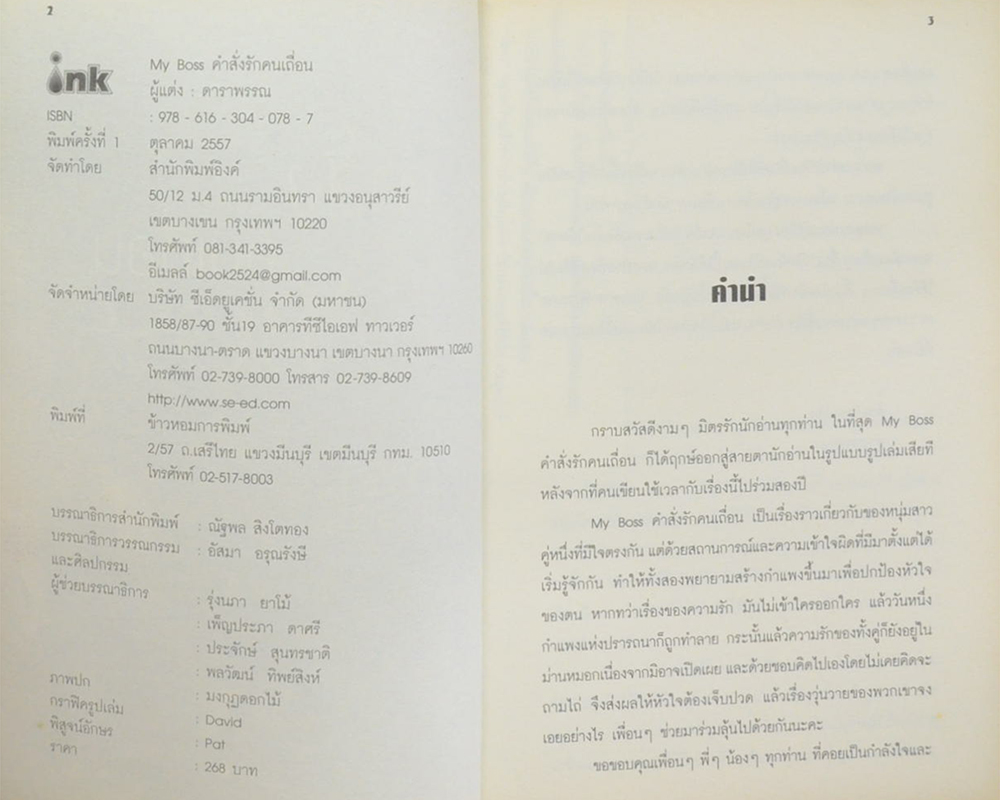 2
ink
My Boss คำสั่งรักคนเถื่อน
ผู้แต่ง : ดาราพรรณ
ISBN : 978 - 616 - 304 - 078 - 7
พิมพ์ครั้งที่ 1 ตุลาคม 2557
จัดทำโดย สำนักพิมพ์อิงค์
50/12 ม.4 ถนนรามอินทรา แขวงอนุสาวรีย์
เขตบางเขน กรุงเทพฯ 10220
โทรศัพท์ 081-341-3395
อีเมลล์ book2524@gmail.com
จัดจำหน่ายโดย บริษัท ซีเอ็ดยูเคชั่น จำกัด (มหาชน)
1858/87-90 ชั้น19 อาคารทีซีไอเอฟ ทาวเวอร์
ถนนบางนา-ตราด แขวงบางนา เขตบางนา กรุงเทพฯ 10260
โทรศัพท์ 02-739-8000 โทรสาร 02-739-8609
http://www.se-ed.com
พิมพ์ที่ ข้าวหอมการพิมพ์
2/57 ถ.เสรีไทย แขวงมีนบุรี เขตมีนบุรี กทม. 10510
โทรศัพท์ 02-517-8003
บรรณาธิการสำนักพิมพ์ : ณัฐพล สิงโตทอง
บรรณาธิการวรรณกรรม : อัสมา อรุณรังษี
และศิลปกรรม
ผู้ช่วยบรรณาธิการ : รุ่งนภา ยาโม้
: เพ็ญประภา ดาศรี
: ประจักษ์ สุนทรชาติ
: พลวัฒน์ ทิพย์สิงห์
ภาพปก : มงกุฎดอกไม้
กราฟิครูปเล่ม : David
พิสูจน์อักษร : Pat
ราคา : 268 บาท
3
คำนำ
กราบสวัสดีงามๆ มิตรรักนักอ่านทุกท่าน ในที่สุด My Boss
คำสั่งรักคนเถื่อน ก็ได้ฤกษ์ออกสู่สายตานักอ่านในรูปแบบรูปเล่มเสียที
หลังจากที่คนเขียนใช้เวลากับเรื่องนี้ไปร่วมสองปี
My Boss คำสั่งรักคนเถื่อน เป็นเรื่องราวเกี่ยวกับของหนุ่มสาว
คู่หนึ่งที่มีใจตรงกัน แต่ด้วยสถานการณ์และความเข้าใจผิดที่มีมาตั้งแต่ได้
เริ่มรู้จักกัน ทำให้ทั้งสองพยายามสร้างกำแพงขึ้นมาเพื่อปกป้องหัวใจ
ของตน หากทว่าเรื่องของความรัก มันไม่เข้าใครออกใคร แล้ววันหนึ่ง
กำแพงแห่งปรารถนาก็ถูกทำลาย กระนั้นแล้วความรักของทั้งคู่ก็ยังอยู่ใน
ม่านหมอกเนื่องจากมิอาจเปิดเผย และด้วยชอบคิดไปเองโดยไม่เคยคิดจะ
ถามไถ่ จึงส่งผลให้หัวใจต้องเจ็บปวด แล้วเรื่องวุ่นวายของพวกเขาจง
เอยอย่างไร เพื่อนๆ ช่วยมาร่วมลุ้นไปด้วยกันนะคะ
ขอขอบคุณเพื่อนๆ พี่ๆ น้องๆ ทุกท่าน ที่คอยเป็นกำลังใจและ